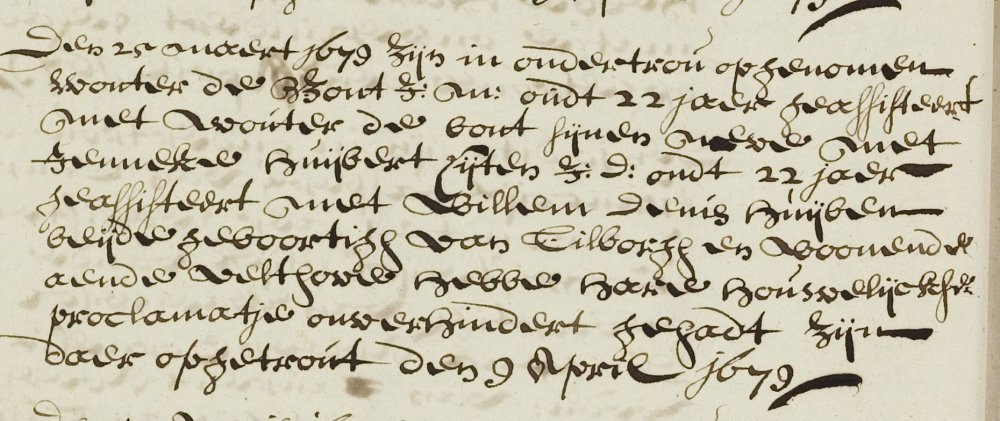 Den 25 maert 1679 zijn in ondertrou opgenomen
wouter de Bont J: M: oudt 22 jaer geassisteert
met wouter de bont sijnen neve met
Jenneke Huijbert J: d: oudt 22 jaer
geassisteert met Willem Denis Huijben
beijde gevoortigh van Tilborgh en woonende
aende velthove hebbe hare houwelijcksche
proclamatje onverhindert gehadt zijn
daer op getrout den 9 April 1679